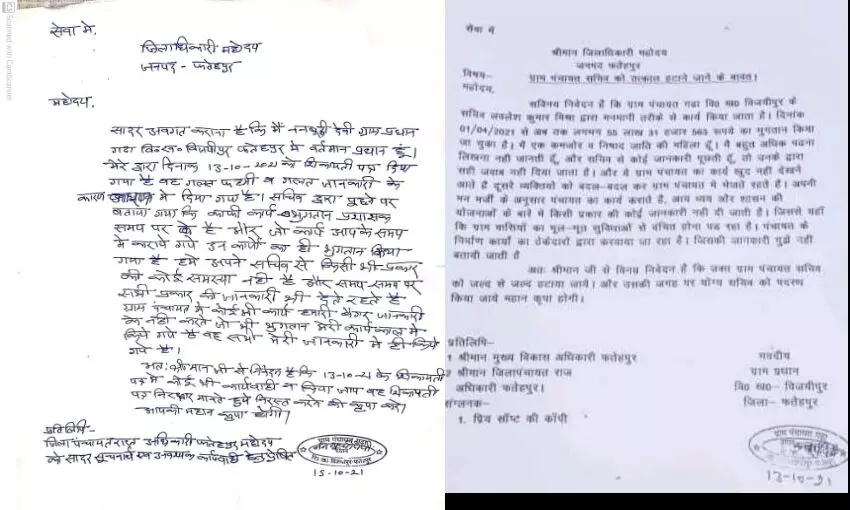 सेवा मे,
जिलाधिकारी महोदय
जनपद - फतेहपुर
महोदय,
सादर अवगत कराना है कि मैं ननबुद्दी देवी ग्राम प्रधान
गढा वि०ख० विजयीपुर फतेहपुर मे वर्तमान प्रधान हूँ।
मेरे द्वारा दिनांक 13-10-2021 को शिकायती पत्र दिया
गया है वह गलत फहमी व गलत जानकारी के
कारण मे दिया गया है। सचिव द्वारा पूछने पर
बताया गया कि काफी कार्य भुगतान प्रशासक
समय पर के है और जो कार्य आपके समय
मे कराये गये उन कार्यों का ही भुगतान किया
गया है हमे अपने सचिव से किसी भी प्रकार
की कोई समस्या नही है और समय-समय पर
सभी प्रकार की जानकारी भी देते रहते है
ग्राम पंचायत मे कोई भी कार्य हमारी बगैर जानकारी
के नही करते जो भी भुगतान मेरी कार्यकाल मे
किये गये है वह सभी मेरी जानकारी मे ही किये
गये है।
अतः श्रीमान जी से निवेदन है कि 13-10-21 के शिकायती
पत्र मे कोई भी कार्यवाही न किया जाय वह शिकायती
पत्र निराधार मानते हुये निरस्त करने की कृपा करे।
आपकी महान कृपा होगी।
प्रतिलिपि-
जिला पंचायत राज अधिकारी फतेहपुर महोदय
को सादर सूचनार्थ एवं आवश्यक कार्यवाही हेतु प्रेषित
15-10-21
Scanned with CamScanner
सेवा में
श्रीमान जिलाधिकारी महोदय
जनपद फतेहपुर
विषय- ग्राम पंचायत सचिव को तत्काल हटाने जाने के बावत।
महोदय,
सविनय निवेदन है कि ग्राम पंचायत गढा वि० ख० विजयीपुर के
सचिव लवलेश कुमार मिश्रा द्वारा मनमानी तरीके से कार्य किया जाता है। दिनांक
01/04/2021 से अब तक लगभग 55 लाख 31 हजार 563 रूपये का भुगतान किया
जा चुका है। मैं एक कमजोर व निषाद जाति की महिला हूँ। मैं बहुत अधिक पढना
लिखना नही जानती हूँ, और सचिव से कोई जानकारी पूछती हूँ, तो उनके द्वारा
सही जवाब नही दिया जाता है। और ये ग्राम पंचायत का कार्य खुद नही देखने
आते है दूसरे व्यक्तियो को बदल-बदल कर ग्राम पंचायत मे भेजते रहते है। अपनी
मन मर्जी के अनुसार पंचायत का कार्य कराते है, आय व्यय और शासन की
योजनाओं के बारे मे किसी प्रकार की कोई जानकारी नही दी जाती है। जिससे यहाँ
कि ग्राम वासियों का मूल-भूत सुविधाओं से वंचित होना पड रहा है। पंचायत के
निर्माण कार्यो का ठेकेदारो द्वारा करवाया जा रहा है। जिसकी जानकारी मुझे नही
बतायी जाती है
अतः श्रीमान जी से विनम्र निवेदन है कि उक्त ग्राम पंचायत सचिव
को जल्द से जल्द हटाया जाये। और उसकी जगह पर योग्य सचिव को पदस्थ
किया जाये महान कृपा होगी।
प्रतिलिपि-
1 श्रीमान मुख्य विकास अधिकारी फतेहपुर
2 श्रीमान जिलापंचायत राज
अधिकारी फतेहपुर।
संलग्नक-
1. प्रिय सॉफ्ट की कॉपी
भवदीय
ग्राम प्रधान
वि० ख०- विजयीपुर
जिला- फतेहपुर
13-10-21